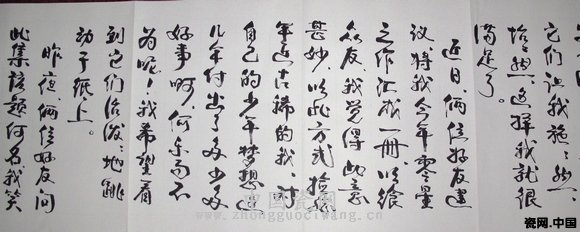 它们让我施施然、
怡怡然、这样我就很
满足了。
近日、俩位好友建
议、将我今年零星
之作汇成一册以飨
众友、我觉得此意
甚妙、以此方式检验
年近古稀的我、对
自己的少年梦想近
几年付出了多少
好事啊、何乐而不
为呢！我希望看
到它们活泼泼地跳
动于纸上。
昨夜、俩位好友问
此集该题何名我笑
中国瓷网
www.zhongguociwang.cn
瓷网.中国